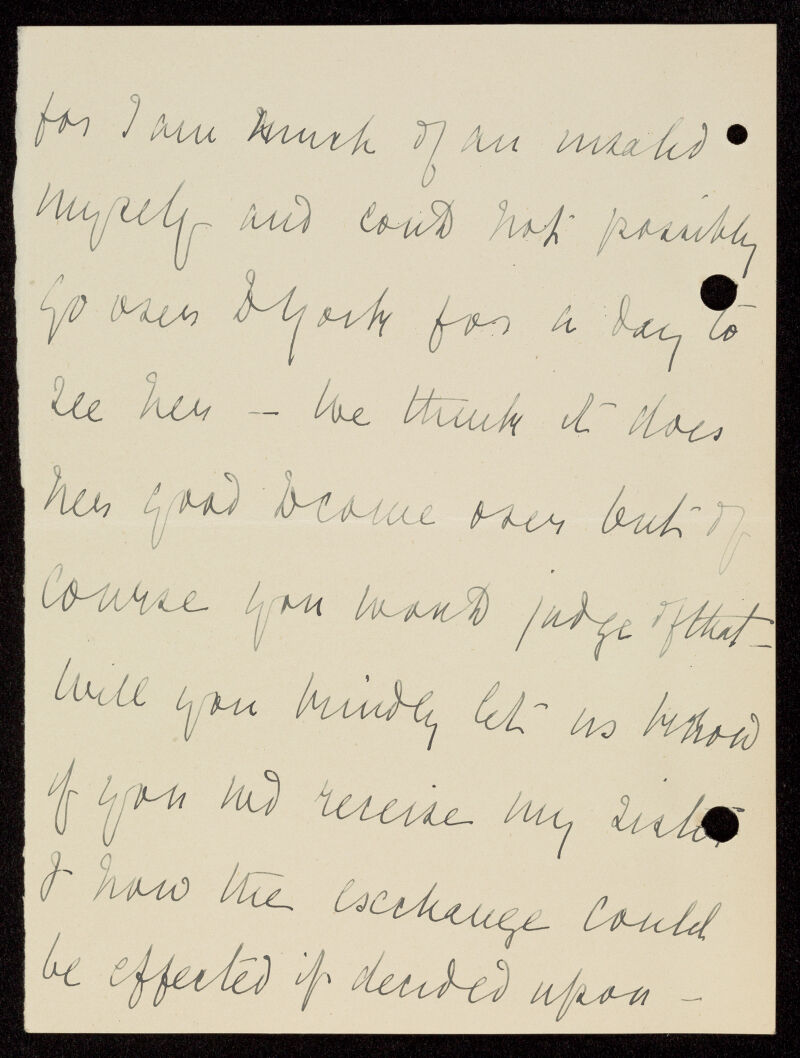 for I am much of an invalid
myself and could not possibly
go over to York for a day to
see her – We think it does
her good to come over but of
course you would judge of that –
Will you kindly let us know
if you receive my sister
& how the exchange could
be effected if decided upon –